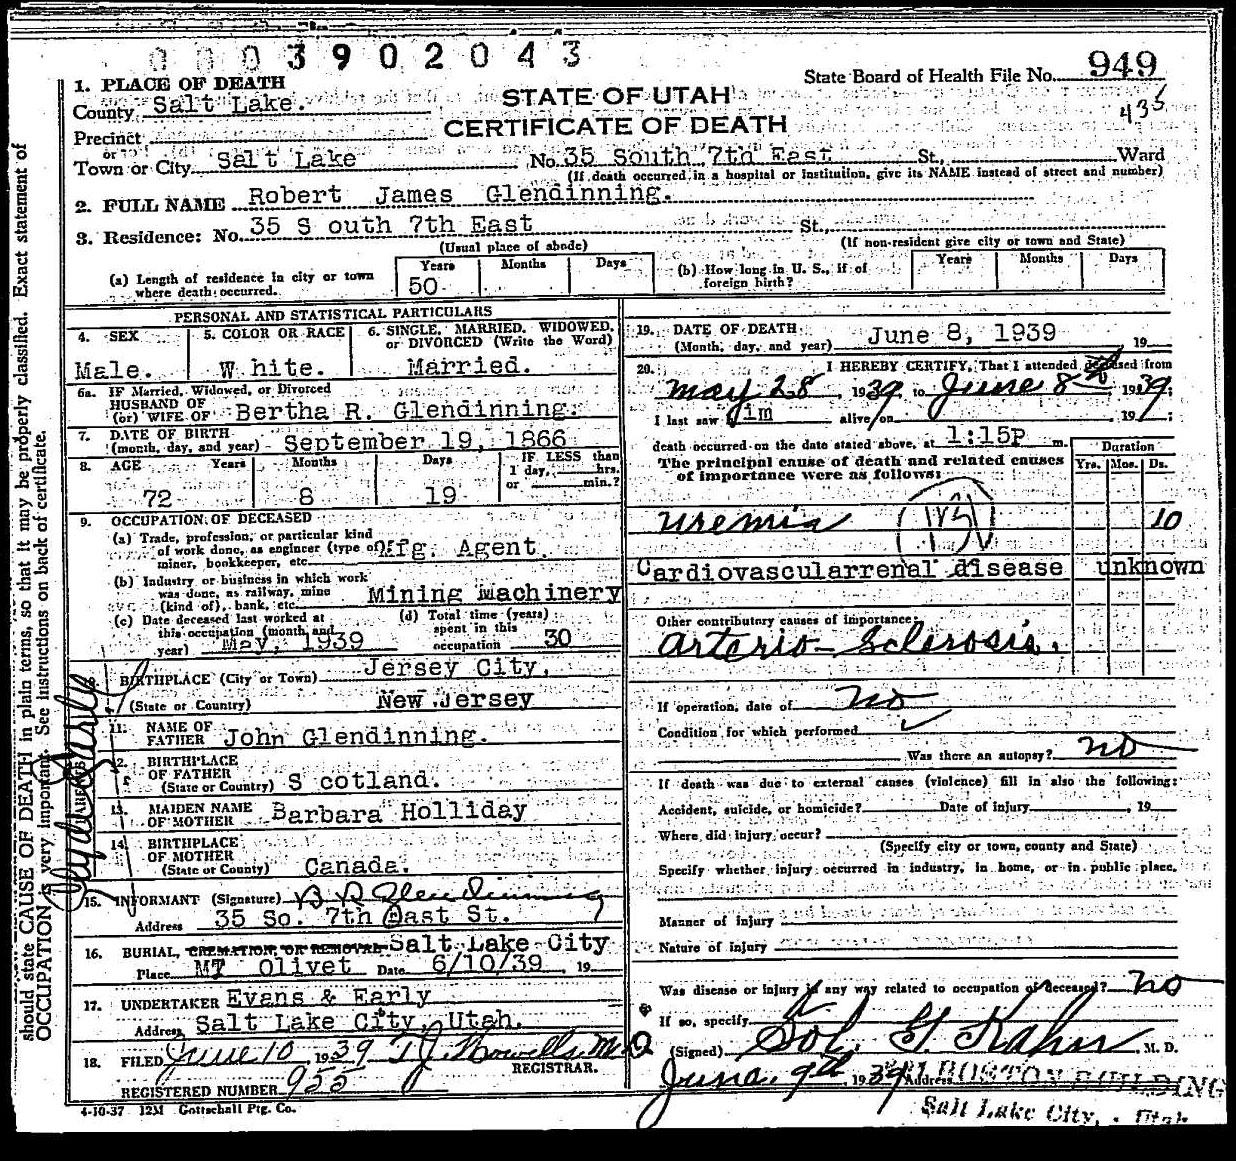 0003902043
State Board of Health File No. 949
435
1. PLACE OF DEATH
County Salt Lake.
STATE OF UTAH
CERTIFICATE OF DEATH
Precinct
or
Town or City Salt Lake No. 35 South 7th East St., Ward
(If death occurred in a hospital or institution, give its NAME instead of street and number)
2. FULL NAME Robert James Glendinning.
3. Residence: No. 35 S outh 7th East St.,
(Usual place of abode) (If non-resident give city or town and State)
(a) Length of residence in city or town where death occurred. Years 50 Months Days
(b) How long in U. S., if of foreign birth? Years Months Days
PERSONAL AND STATISTICAL PARTICULARS
4. SEX Male.
5. COLOR OR RACE W hite.
6. SINGLE, MARRIED, WIDOWED, or DIVORCED (Write the Word) Married.
6a. IF Married, Widowed, or Divorced
HUSBAND OF
(or) WIFE OF Bertha R. Glendinning.
7. DATE OF BIRTH
(month, day, and year) September 19, 1866
8. AGE Years 72 Months 8 Days 19 IF LESS than 1 day, hrs. or min.?
9. OCCUPATION OF DECEASED
(a) Trade, profession, or particular kind
of work done, as engineer (type of Mfg. Agent.
miner, bookkeeper, etc.
(b) Industry or business in which work
was done, as railway, mine Mining Machinery
(kind of), bank, etc.
(c) Date deceased last worked at
this occupation (month, and
year) May, 1939
(d) Total time (years)
spent in this
occupation 30
BIRTHPLACE (City or Town) Jersey City,
(State or Country) New Jersey
11. NAME OF
FATHER John Glendinning.
12. BIRTHPLACE
OF FATHER
(State or Country) S cotland.
13. MAIDEN NAME
OF MOTHER Barbara Holliday
14. BIRTHPLACE
OF MOTHER
(State or County) Canada.
15. INFORMANT (Signature) B R Glendinning
Address 35 So. 7th East St.
16. BURIAL, CREMATION, OR REMOVAL Salt Lake City
Place MT Olivet Date 6/10/39, 19
17. UNDERTAKER Evans & Early
Address Salt Lake City, Utah.
18. FILED June 10 1939 T J Howells M D
REGISTRAR.
REGISTERED NUMBER 955
4-10-37 12M Gottschall Ptg. Co.
19. DATE OF DEATH
(Month, day, and year) June 8, 1939 19
20. I HEREBY CERTIFY, That I attended deceased from
May 28, 1939, to June 8th, 1939;
I last saw im alive on 19 ;
death occurred on the date stated above, at 1:15P m.
The principal cause of death and related causes
of importance were as follows:
Duration
Yrs. Mos. Ds.
Uremia 10
Cardiovascularrenal disease unknown
Other contributory causes of importance:
Arterio-Sclerosis.
If operation, date of no
Condition for which performed
Was there an autopsy? no
If death was due to external causes (violence) fill in also the following:
Accident, suicide, or homicide? Date of injury , 19
Where did injury occur?
(Specify city or town, county and State)
Specify whether injury occurred in industry, in home, or in public place.
Manner of injury
Nature of injury
Was disease or injury in any way related to occupation of deceased? no
If so, specify
(Signed) Sol. G. Kahn M. D.
June 9th 1939 Address BOSTON BUILDING
Salt Lake City, Utah
should state CAUSE OF DEATH in plain terms, so that it may be properly classified. Exact statement of
OCCUPATION is very important. See instructions on back of certificate.